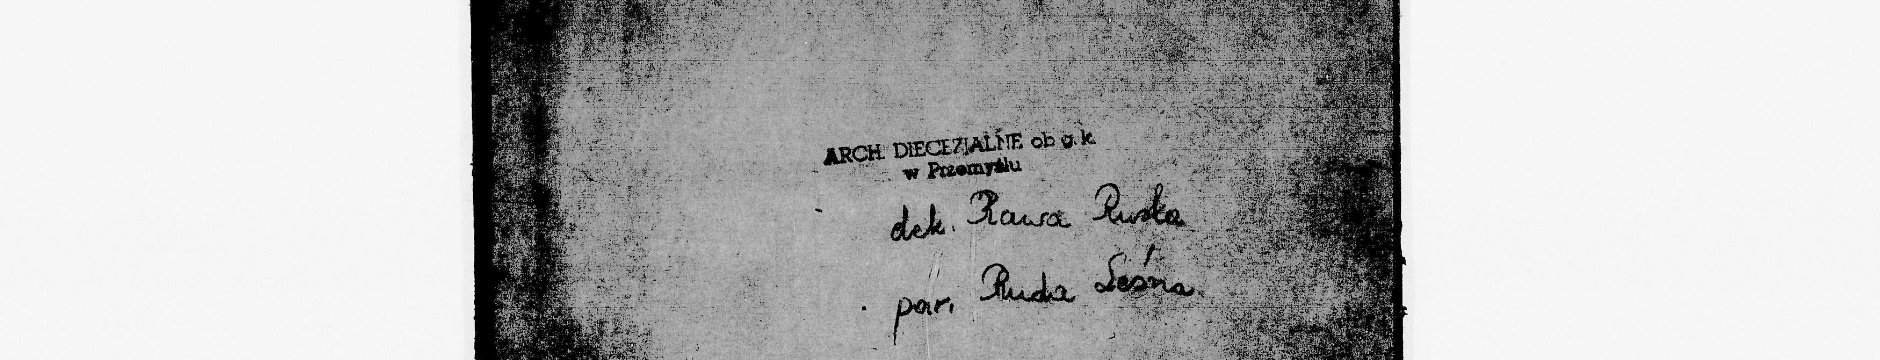 ARCH. DIECEZJALNE ob g. k.
w Przemyślu
dek. Rawa Ruska
par. Ruda Leśna